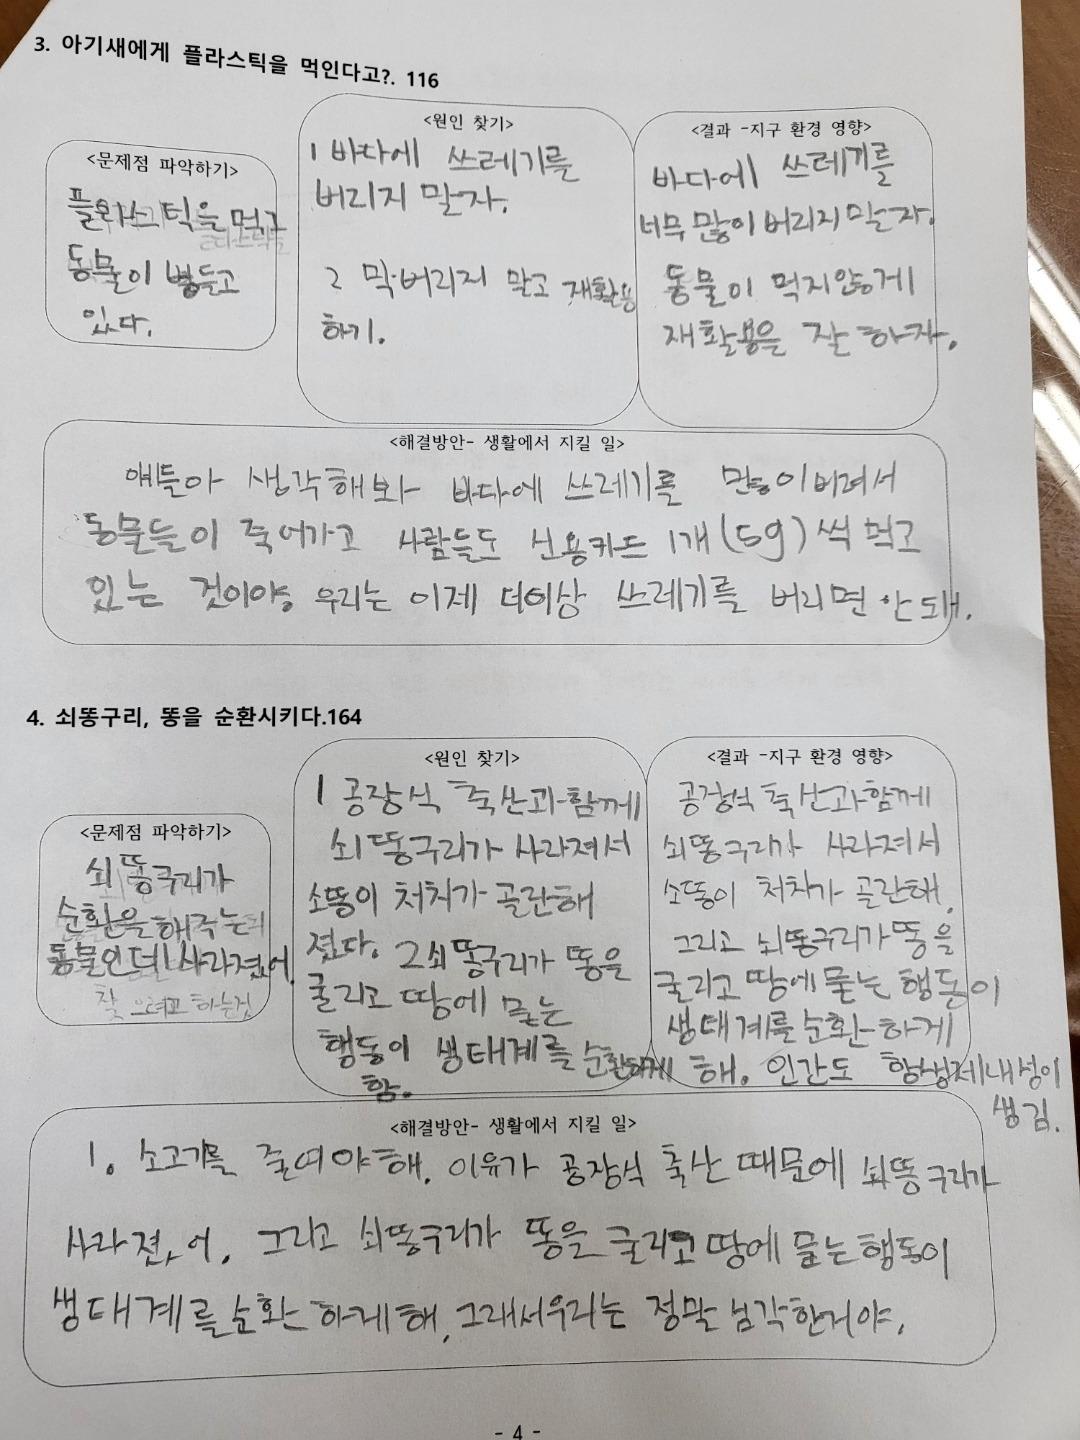 3. 아기새에게 플라스틱을 먹인다고?. 116
<문제점 파악하기>
플라스틱을 먹고
동물이 병들고
있다.
<원인 찾기>
1 바다에 쓰레기를
버리지 말자.
2 막버리지 말고 재활용
하기.
<결과 -지구 환경 영향>
바다에 쓰레기를
너무 많이 버리지 말자.
동물이 먹지않게
재활용을 잘 하자.
<해결방안- 생활에서 지킬 일>
얘들아 생각해봐 바다에 쓰레기를 많이버려서
동물들이 죽어가고 사람들도 신용카드 1개(5g)씩 먹고
있는 것이야. 우리는 이제 더이상 쓰레기를 버리면 안돼.
4. 쇠똥구리, 똥을 순환시키다.164
<문제점 파악하기>
쇠똥구리가
순환을해주는
동물인데 사라졌어.
찾으려고 하는것
<원인 찾기>
1 공장식 축산과 함께
쇠똥구리가 사라져서
소똥이 처치가 골란해
졌다. 2쇠똥구리가 똥을
굴리고 땅에 묻는
행동이 생태계를 순환하게
함.
<결과 -지구 환경 영향>
공장식 축산과함께
쇠똥구리가 사라져서
소똥이 처치가 골란해.
그리고 쇠똥구리가똥을
굴리고 땅에묻는 행동이
생태계를순환하게
해. 인간도 항생제내성이
생김.
<해결방안- 생활에서 지킬 일>
1. 소고기를 줄여야해. 이유가 공장식 축산 때문에 쇠똥구리가
사라졌어. 그리고 쇠똥구리가 똥을 굴리고 땅에 묻는행동이
생태계를순환하게해. 그래서우리는 정말 심각한거야.
- 4 -